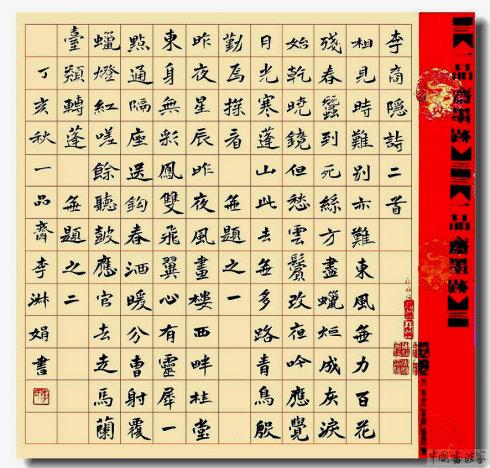 李商隱詩二首
相見時難別亦難東風無力百花
殘春蠶到死絲方盡蠟炬成灰淚
始乾曉鏡但愁雲鬢改夜吟應覺
日光寒蓬山此去無多路青鳥殷
勤為探看 無題之一
昨夜星辰昨夜風畫樓西畔桂堂
東身無彩鳳雙飛翼心有靈犀一
點通隔座送鈎春酒暖分曹射覆
蠟燈紅嗟餘聽鼓應官去走馬蘭
臺類轉蓬 無題之二
丁亥秋一品齋李淋娟書